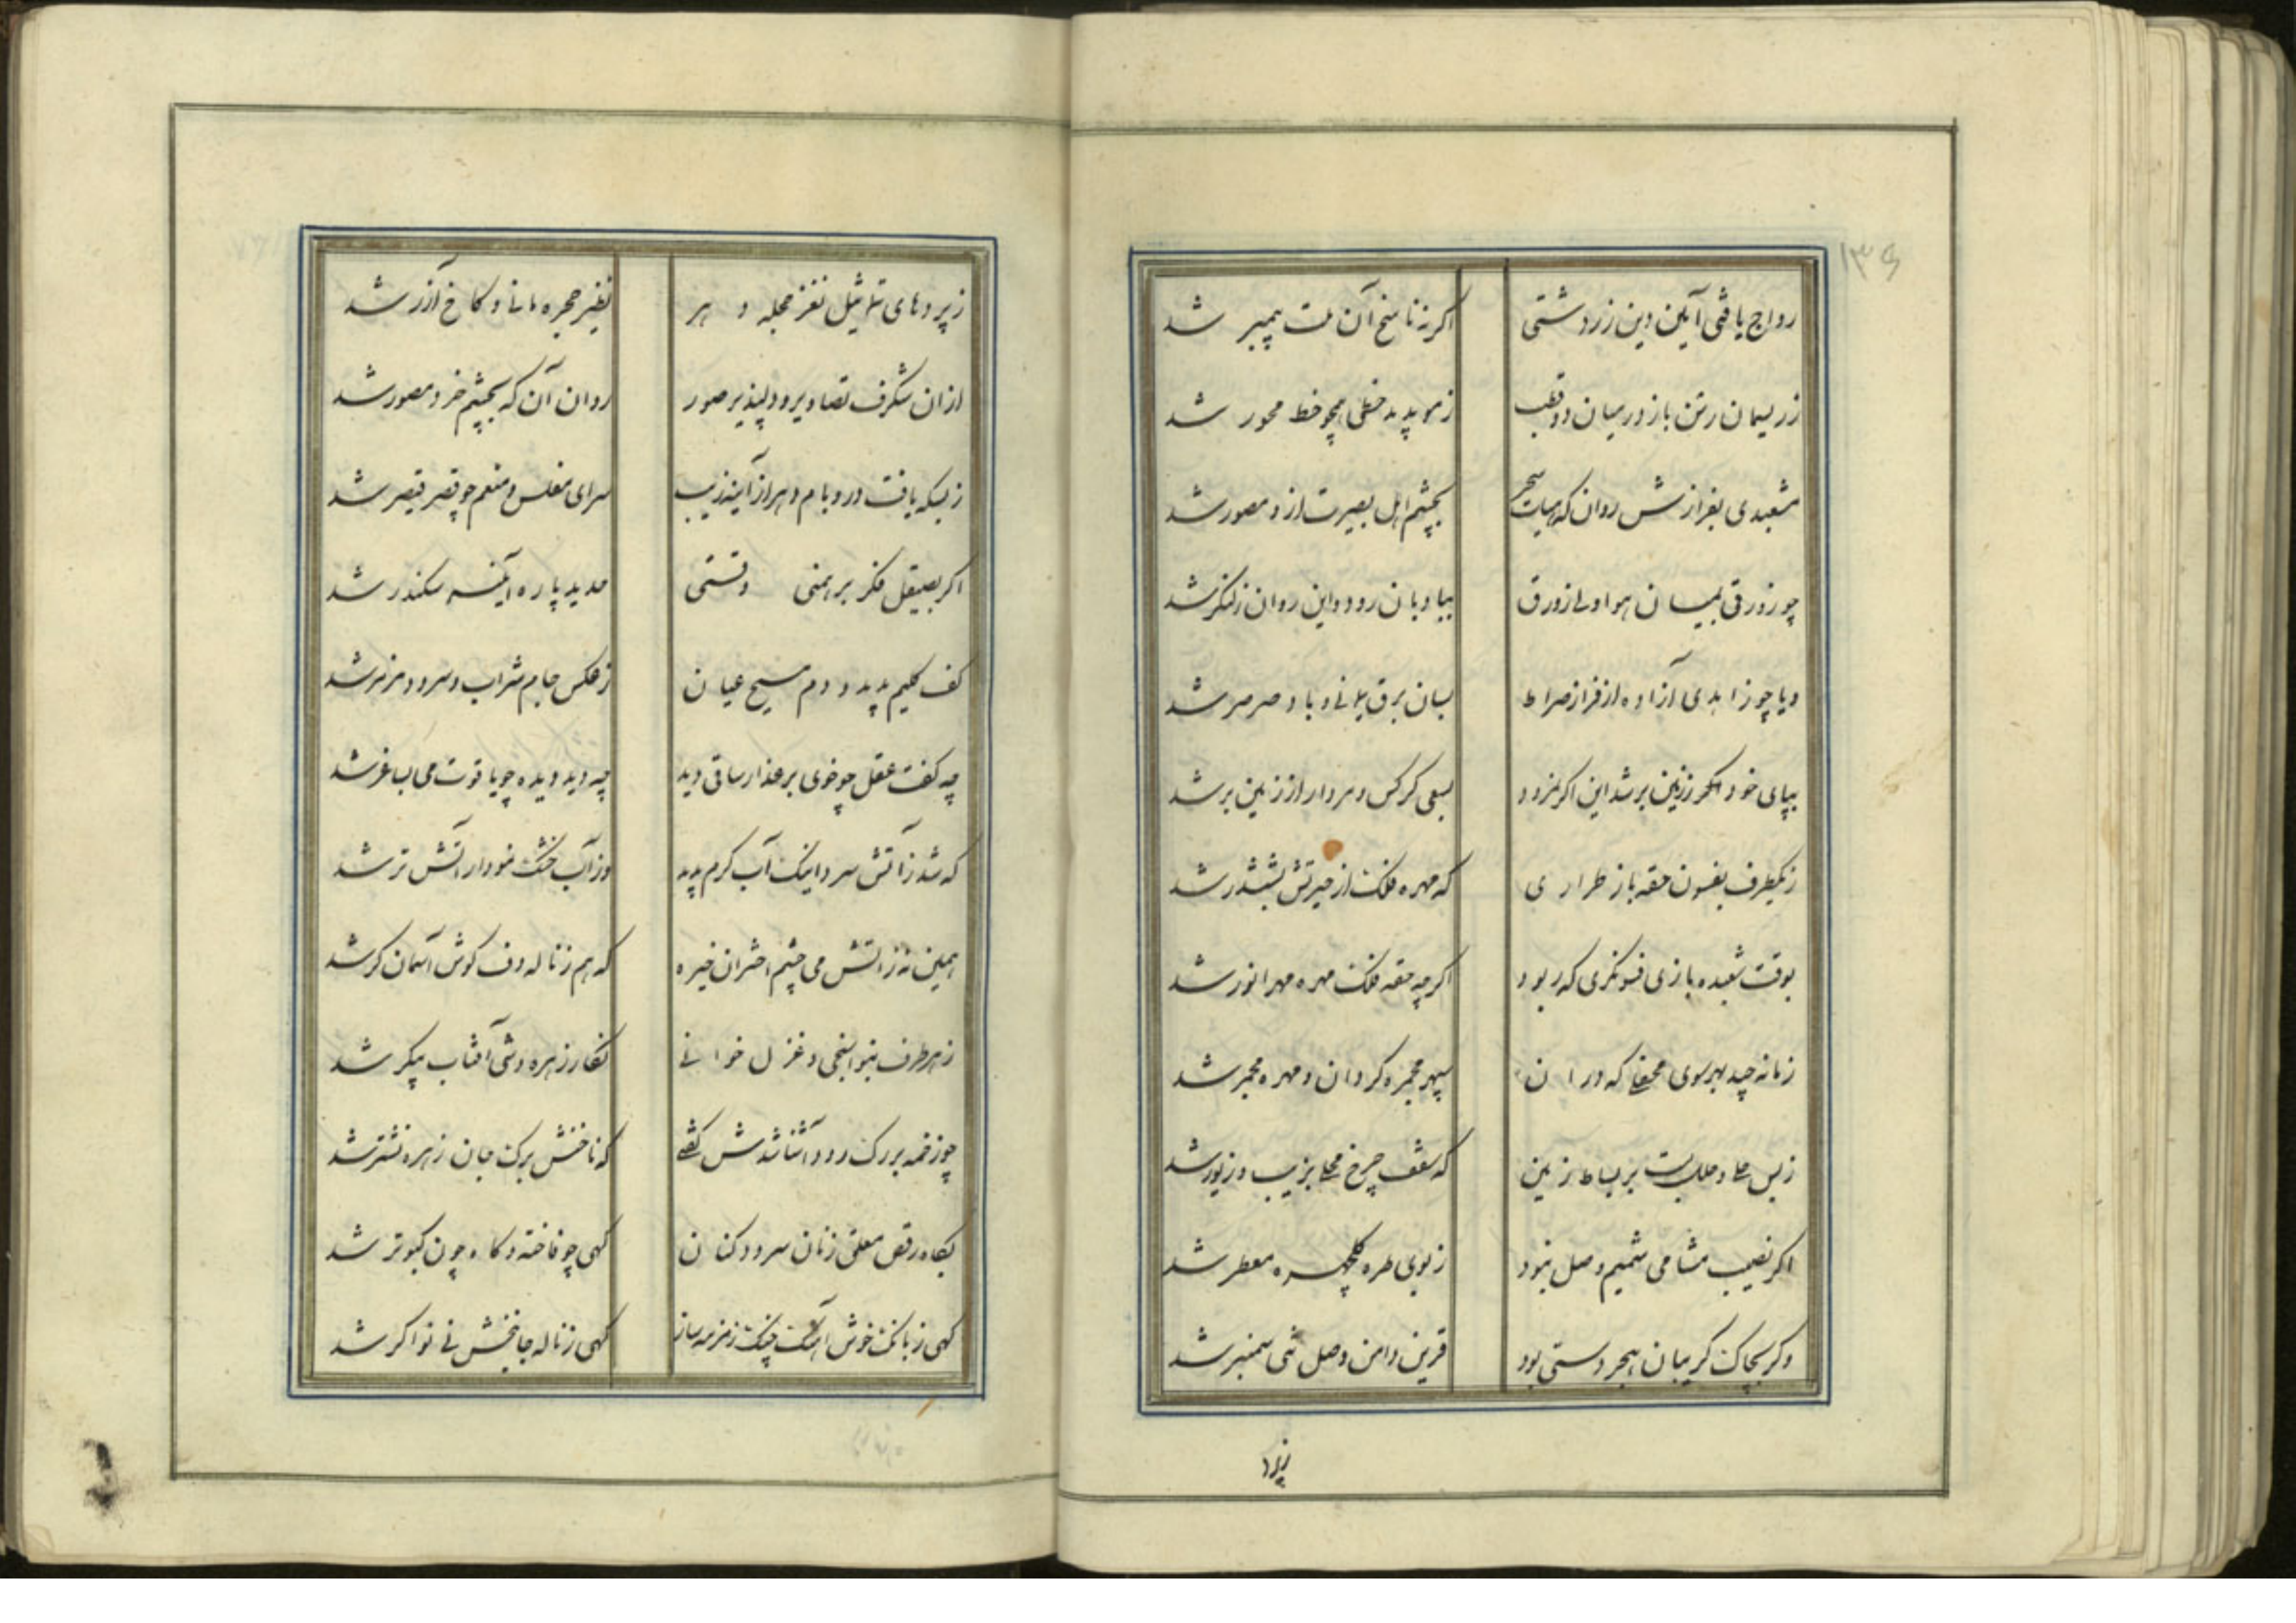 ۱۳۶
رواج یافتی آیین دین زردشتی اکر نه ناسخ آن ملت پیمبر شد
ز ریسمان رسن باز در میان دو قطب ز مو پدید خطی همچو خط محور شد
مشعبدی بفرازش روان که سحر بچشم اهل بصیرت ازو مصور شد
چو زورقی بمیان هوا ولی زورق بباد بان رود و این روان ز لنکر شد
و یا چو زاهدی آزاده از فراز صراط بسان برق یمانی و باد صرصر شد
بپای خود ز زمین بر شد این اکر نمرود بسعی کرکس و مردار از زمین بر شد
ز یکطرف بفسون حقه باز طراری که مهره فلک از حیرتش بششدر شد
بوقت شعبده بازی فسونکری که ربود اکر چه حقه فلک مهره مهر انور شد
زمانه چید بهر سوی محفلی که در ان سپهر مجمره کردان و مهره مجمر شد
ز بس حلی و حلل بست بر بساط زمین که سقف چرخ محلی بزیب و زیور شد
اکر نصیب مشامی شمیم وصل نبود ز بوی طره کلچهره معطر شد
وکر بچاک کریبان هجر دستی بود قرین دامن وصل بتی سمنبر شد
ز پرد
ز پردهای تماثیل نغز حجله و هر نظیر حجره مانی و کاخ آزر شد
ازان شکرف تصاویر و دلپذیر صور روان آن که بچشم خرد مصور شد
ز بسکه یافت در و بام دهر از آینه زیب سرای مفلس و منعم چو قصر قیصر شد
اکر بصیقل فکر برهمنی وقتی حدید پاره آیینه سکندر شد
کف کلیم پدید و دم مسیح عیان ز عکس جام شراب و سرود مزمر شد
چه کفت عقل چو خوی بر عذار ساقی دید چه دید دیده چو یاقوت می بساغر شد
که شد ز آتش سرد اینک آب کرم پدید وز آب خشک نمودار آتش تر شد
همین نه ز اتش می چشم اختران خیره که هم ز ناله دف کوش آسمان کر شد
ز هر طرف بنواسنجی و غزل خوانی نکار زهره وشی آفتاب پیکر شد
چو زخمه بر رک رود آشنا شدش کفتی که ناخنش برک جان زهره نشتر شد
بکاه رقص معلق زنان سرود کنان کهی چو فاخته و کاه چون کبوتر شد
کهی ز بانک خوش آهنک چنک زمزمه ساز کهی ز ناله جانبخش نی نواکر شد